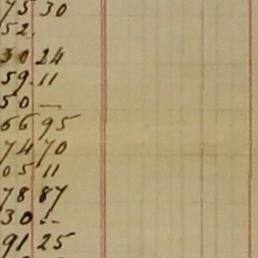 75 30
52.
30 24
59.11
50 —
66 95
74 70
05 11
78 87
30 --
91 25